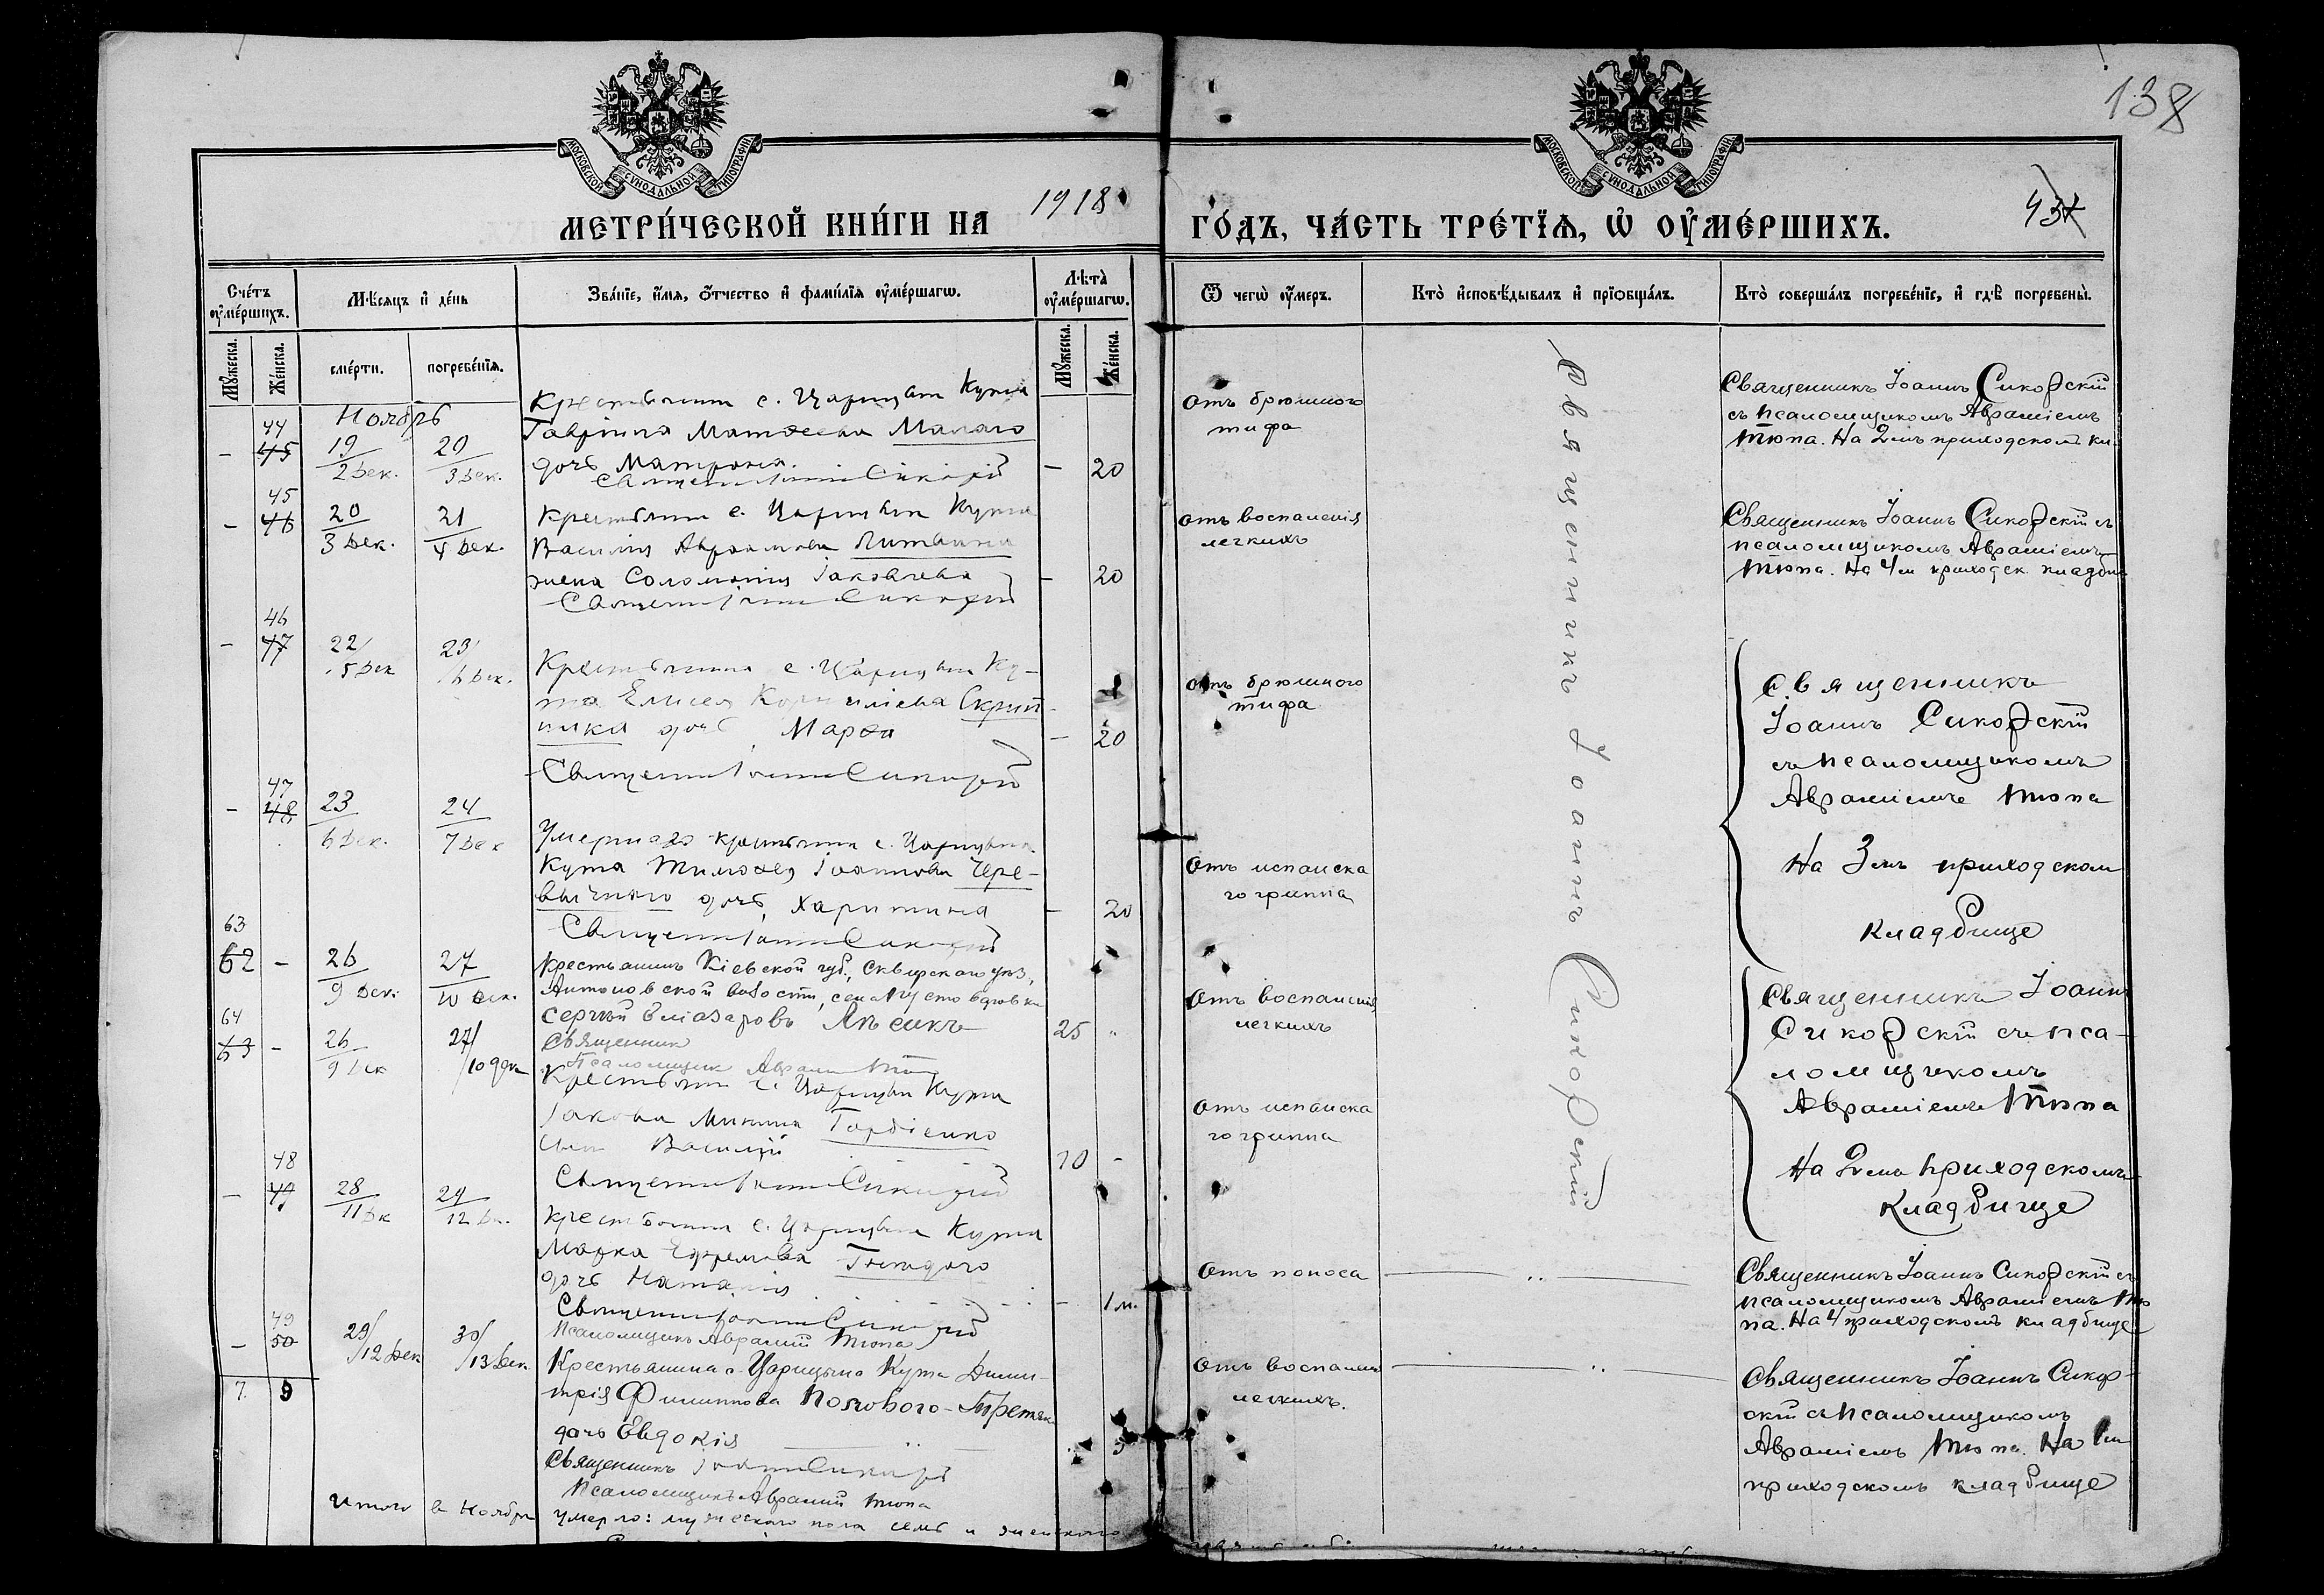 138
МОСКОВСКОЙ СУНОДАЛЬНОЙ ТИПОГРАФІИ
МОСКОВСКОЙ СУНОДАЛЬНОЙ ТИПОГРАФІИ
МЕТРИ́ЧЕСКОЙ КНИ́ГИ НА 1918 ГО́ДЪ, ЧА́СТЬ ТРЕ́ТІѦ, Ѡ҆ ОУ҆МЕ́РШИХЪ.
Сче́тъ оу҆ме́ршихъ.
Мѣ́сяцъ и҆ де́нь
Зва́нїе, и҆́мѧ, ѻ҆́тчество и҆ фами́лїѧ оу҆ме́ршагѡ.
Лѣ́та̀ оу҆ме́ршагѡ.
Ѿ чегѡ̀ оу҆́меръ.
Кто̀ и҆сповѣ́дывалъ и҆ прїѡбща́лъ.
Кто̀ соверша́лъ погребе́нїе, и҆ гдѣ̀ погребены̀.
Мꙋ́жеска.
Же́нска.
сме́рти.
погребе́нїѧ.
Мꙋ́жеска.
Же́нска.
Священникъ Іоаннъ Сикорскій
Ноябрь
44
45
19
2 Дек.
20
3 Дек.
Крестьянина с. Царицына Кута
Гавріила Матѳеева Малаго
дочь Матрона.
Священникъ Іоаннъ Сикорскій
– 20
Отъ брюшного
тифа
Священникъ Іоаннъ Сикорскій
съ псаломщикомъ Авраміемъ
Тюпа. На 2мъ приходскомъ кл.
45
– 46
20
3 Дек.
21
4 Дек.
Крестьянина с. Царицына Кута
Василія Авраамова Литвина
жена Соломонія Іаковлева
Священникъ Іоаннъ Сикорскій
– 20
Отъ воспаленія
легкихъ
Священникъ Іоаннъ Сикорскій съ
псаломщикомъ Авраміемъ
Тюпа. На 4м приходск. кладбищ
46
– 47
22/
5 Дек
23/
6 Дек.
Крестьянина с. Царицына Ку-
та Елисея Корнилиева Скрип-
ника дочь Марѳа
Священникъ Іоаннъ Сикорскій
– 20
Отъ брюшного
тифа
Священникъ
Іоаннъ Сикорскій
съ псаломщикомъ
Авраміемъ Тюпа
На 3мъ приходском
кладбище
47
– 48
23
6 Дек.
24
7 Дек
Умершаго крестьянина с. Царицына
Кута Тимоѳея Іоаннова Чере-
вычнаго дочь Харитина
Священникъ Іоаннъ Сикорскій
– 20
Отъ испанска
го гриппа
63
62 –
26
9 Дек.
27
10 Дек.
Крестьянинъ Кіевской губ., Сквирскаго уѣз.,
Антоновской волости, села
Сергій Еліазаровъ
Священник
Псаломщик Аврамій Тюпа
25
Отъ воспаленія
легкихъ
Священникъ Іоаннъ
Сикорскій съ пса-
ломщикомъ
Авраміемъ Тюпа
На 2мъ приходскомъ
кладбище
64
63 –
26
9 Дек
27/
10 Дек
Крестьянина с. Царицына Кута
Іакова Микиты Гордіенко
сын Василій
Священникъ Іоаннъ Сикорскій
10 –
Отъ испанска
го гриппа
48
– 49
28
11 Дк
29
12 Дк.
Крестьянина с. Царицына Кута
Марка Ефремова
дочь Наталія
Священникъ Іоаннъ Сикорскій
Псаломщикъ Аврамій Тюпа
– 1 м.
Отъ поноса
Священникъ Іоаннъ Сикорскій съ
псаломщикомъ Авраміемъ Тю
па. На 4 приходскомъ кладбище
49
– 50
29/
12 Дек
30/
13 Дек.
Крестьянина с. Царицына Кута Дими-
трія Филиппова Полового-Третяк
дочь Евдокія
Священникъ Іоаннъ Сикорскій
Псаломщикъ Аврамій Тюпа
Отъ воспален
легкихъ.
Священникъ Іоаннъ Сикор-
скій съ псаломщикомъ
Авраміемъ Тюпа. На 1м
приходскомъ кладбище
7. 9
Итого в Ноябре умерло: мужескаго пола семь и женскаго